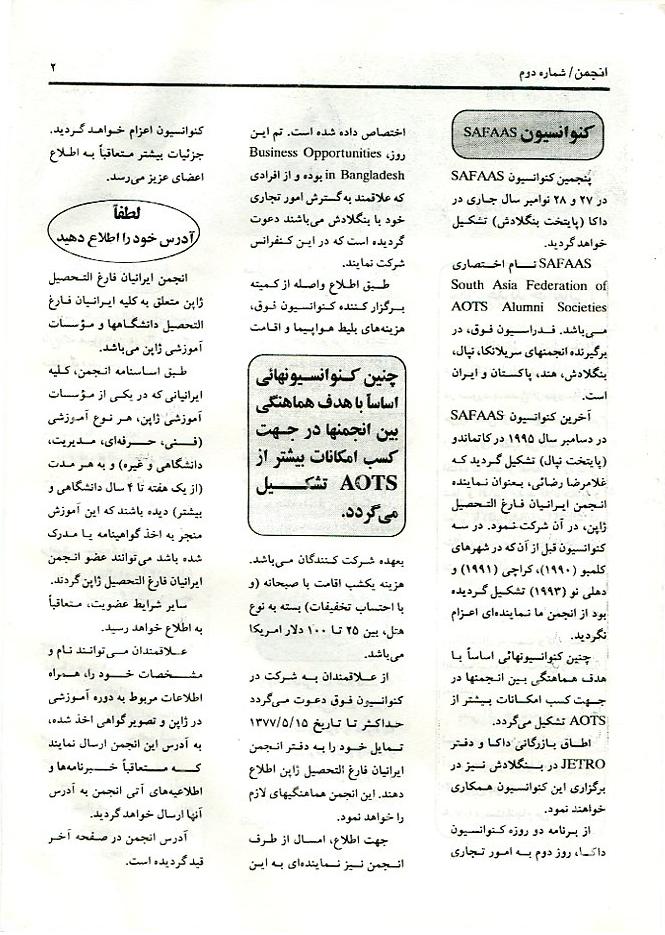 انجمن / شماره دوم
۲
کنوانسیون SAFAAS
پنجمین کنوانسیون SAFAAS
در ۲۷ و ۲۸ نوامبر سال جاری در
داکا (پایتخت بنگلادش) تشکیل
خواهد گردید.
SAFAAS نـام اخـتصاری
South Asia Federation of
AOTS Alumni Societies
می‌باشد. فـدراسـیون فـوق، در
برگیرنده انجمنهای سریلانکا، نپال،
بنگلادش، هند، پاکستان و ایران
است.
آخرین کنوانسیون SAFAAS
در دسامبر سال ۱۹۹۵ در کاتماندو
(پایتخت نپال) تشکیل گردید که
غلامرضا رضائی، بعنوان نماینده
انجمن ایرانیان فارغ التحصیل
ژاپن، در آن شرکت نمود. در سه
کنوانسیون قبل از آن که در شهرهای
کلمبو (۱۹۹۰)، کراچی (۱۹۹۱) و
دهلی نو (۱۹۹۳) تشکیل گردیده
بود از انجمن ما نماینده‌ای اعزام
نگردید.
چنین کنوانسیونهائی اساساً با
هدف هماهنگی بین انجمنها در
جهت کسب امکانات بیشتر از
AOTS تشکیل می‌گردد.
اطاق بازرگانی داکا و دفتر
JETRO در بنگلادش نیز در
برگزاری این کنوانسیون همکاری
خواهند نمود.
از برنامه دو روزه کنوانسیون
داکا، روز دوم به امور تجاری
اختصاص داده شده است. تم این
روز، Business Opportunities
in Bangladesh بوده و از افرادی
که علاقمند به گسترش امور تجاری
خود با بنگلادش می‌باشند دعوت
گردیده است که در این کنفرانس
شرکت نمایند.
طبق اطلاع واصله از کمیته
برگزار کننده کنوانسیون فوق،
هزینه‌های بلیط هواپیما و اقامت
چنین کنوانسیونهائی
اساساً با هدف هماهنگی
بین انجمنها در جهت
کسب امکانات بیشتر از
AOTS تشکیل
می‌گردد.
بعهده شرکت کنندگان می‌باشد.
هزینه یکشب اقامت با صبحانه (و
با احتساب تخفیفات) بسته به نوع
هتل، بین ۲۵ تا ۱۰۰ دلار امریکا
می‌باشد.
از علاقمندان به شرکت در
کنوانسیون فوق دعوت می‌گردد
حداکثر تا تاریخ ۱۳۷۷/۵/۱۵
تمایل خود را به دفتر انجمن
ایرانیان فارغ التحصیل ژاپن اطلاع
دهند. این انجمن هماهنگیهای لازم
را خواهد نمود.
جهت اطلاع، امسال از طرف
انجمن نیز نماینده‌ای به این
کنوانسیون اعزام خواهد گردید.
جزئیات بیشتر متعاقباً به اطلاع
اعضای عزیز می‌رسد.
لطفاً
آدرس خود را اطلاع دهید
انجمن ایرانیان فارغ التحصیل
ژاپن متعلق به کلیه ایرانیان فارغ
التحصیل دانشگاهها و مؤسسات
آموزشی ژاپن می‌باشد.
طبق اساسنامه انجمن، کلیه
ایرانیانی که در یکی از مؤسسات
آموزشی ژاپن، هر نوع آموزشی
(فنی، حرفه‌ای، مدیریت،
دانشگاهی و غیره) و به هر مدت
(از یک هفته تا ۴ سال دانشگاهی و
بیشتر) دیده باشند که این آموزش
منجر به اخذ گواهینامه یا مدرک
شده باشد می‌توانند عضو انجمن
ایرانیان فارغ التحصیل ژاپن گردند.
سایر شرایط عضویت، متعاقباً
به اطلاع خواهد رسید.
علاقمندان می‌توانند نام و
مشخصات خود را، همراه
اطلاعات مربوط به دوره آموزشی
در ژاپن و تصویر گواهی اخذ شده،
به آدرس این انجمن ارسال نمایند
که متعاقباً خبرنامه‌ها و
اطلاعیه‌های آتی انجمن به آدرس
آنها ارسال خواهد گردید.
آدرس انجمن در صفحه آخر
قید گردیده است.